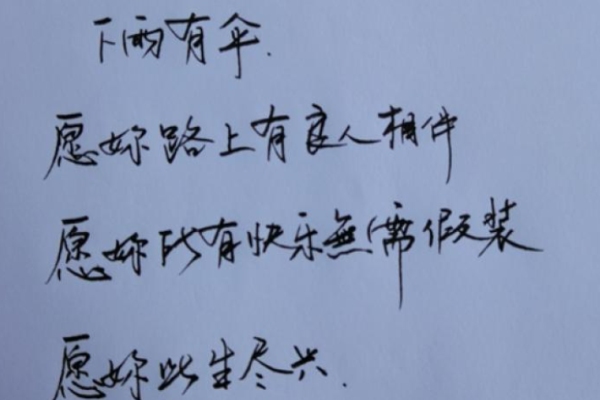 下雨有伞.
愿妳路上有良人相伴
愿妳所有快乐無需假装
愿妳此生尽兴.